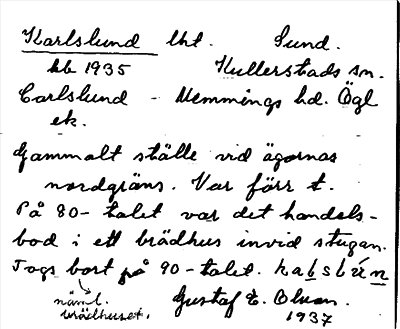 Karlslund lht. Sund.
hb 1935 Kullerstads sn.
Carlslund - Memmings hd. Ögl
ek.
Gammalt ställe vid ägornas
nordgräns. Var förr t.
På 80-talet var det handels-
bod i ett brädhus invid stugan.
Togs bort på 90-talet.
näml. Gustaf E. Olson.
brädhuset. 1937